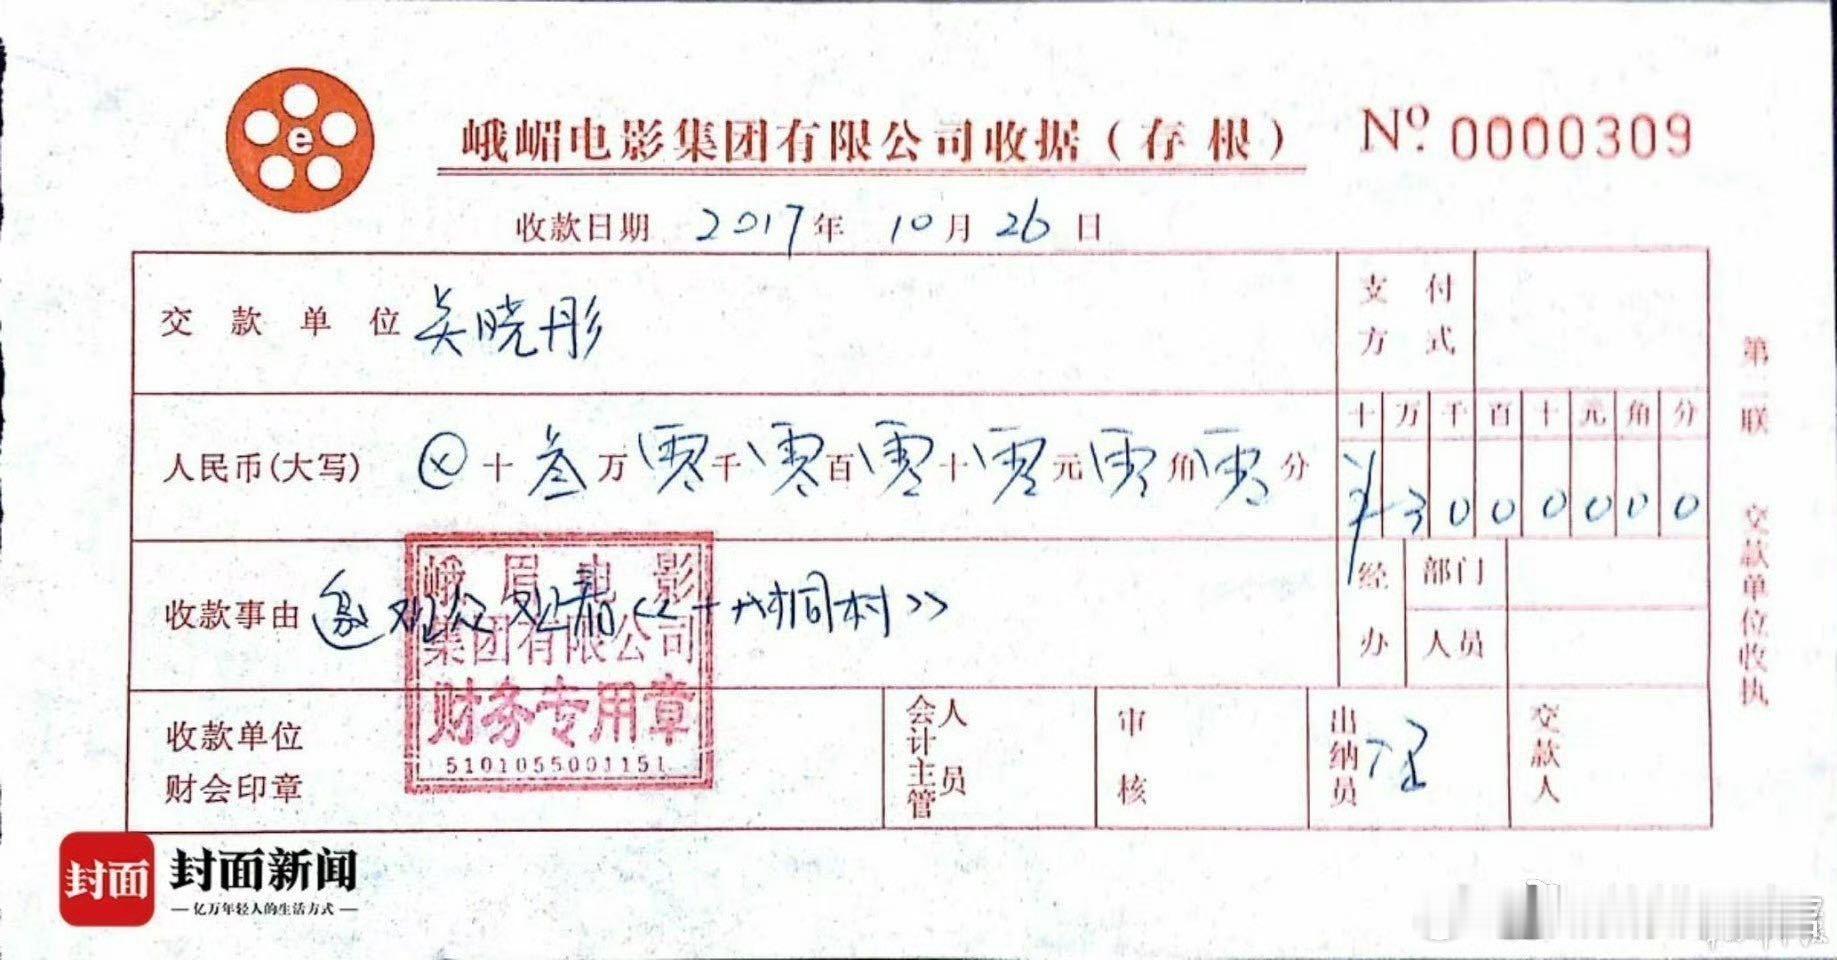 e
峨嵋电影集团有限公司收据（存根） Nº 0000309
收款日期 2017年 10月 26日
交款单位 吴晓彤
支付方式
人民币(大写) ⊗十叁万零千零百零十零元零角零分
十万千百十元角分
¥3000000
收款事由 邀观众观看《十八洞村》
经办
部门
人员
峨眉电影
集团有限公司
财务专用章
5101055001151
收款单位
财会印章
会计主管
人员
审核
出纳员
交款人
第二联 交款单位收执
封面
封面新闻
—亿万年轻人的生活方式—